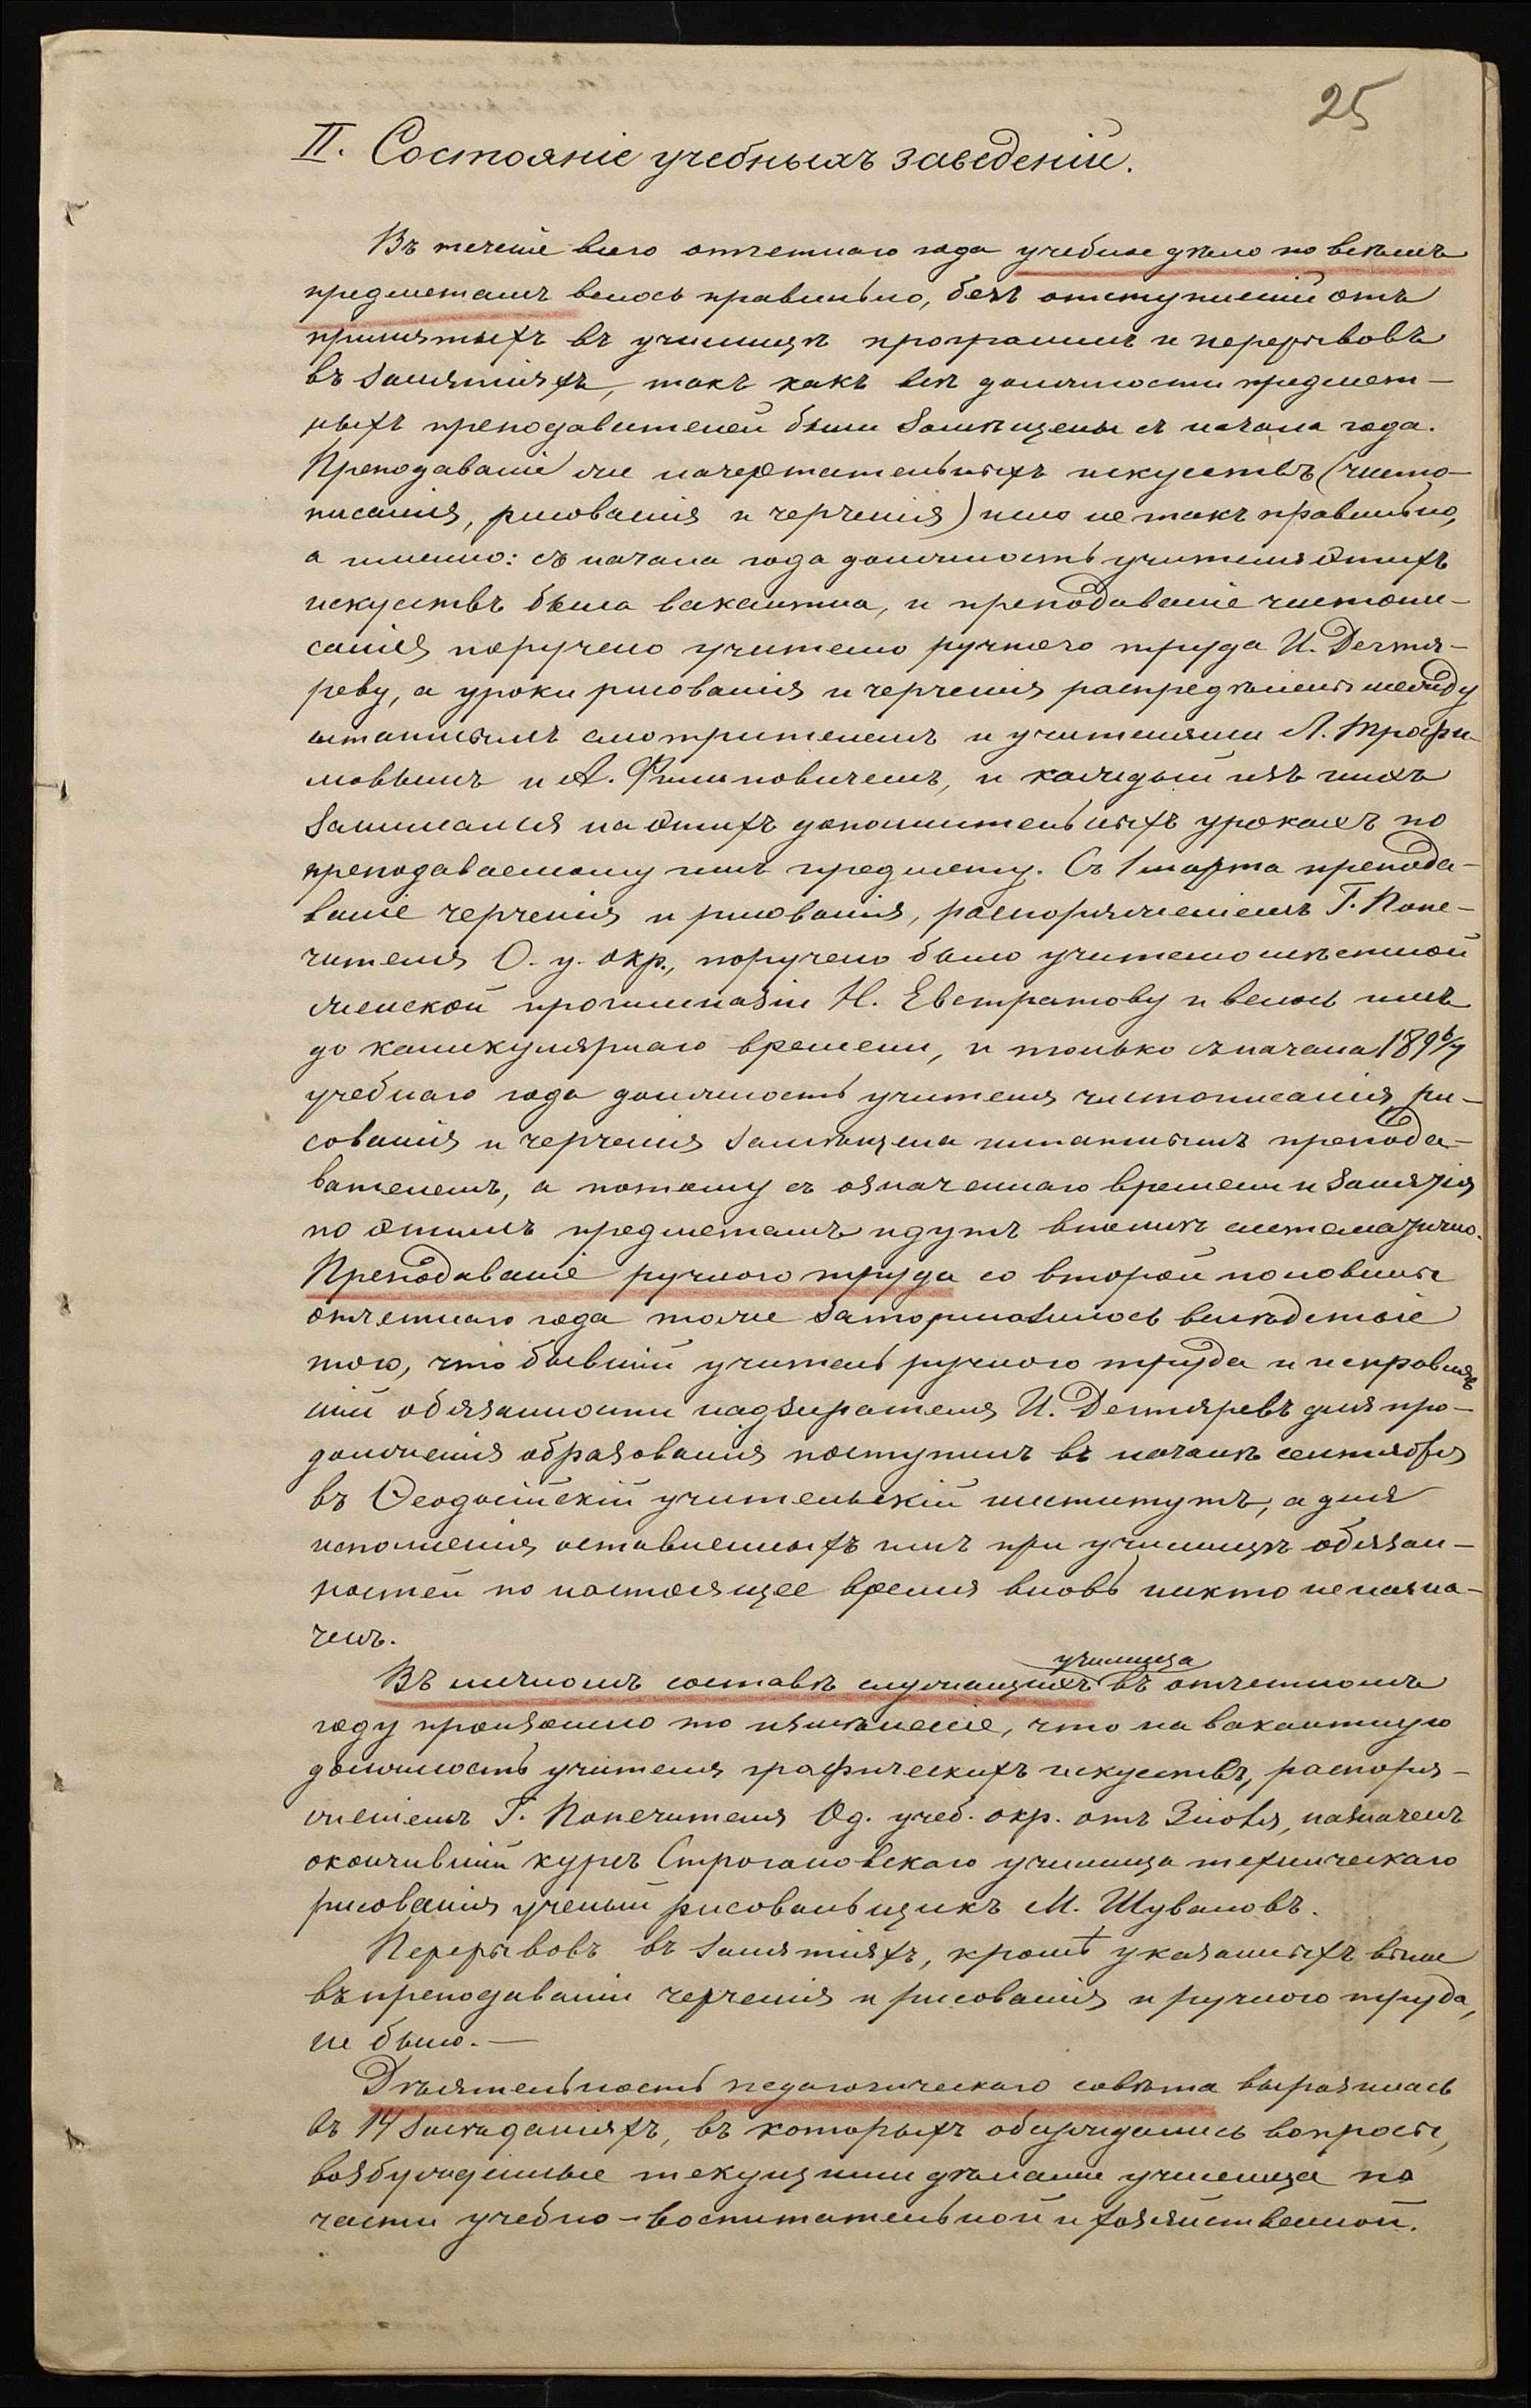 25
II. Состояніе учебныхъ заведеній.
Въ теченіе всего отчетнаго года учебное дѣло по всѣмъ
предметамъ велось правильно, безъ отступленій отъ
принятыхъ въ училищѣ программъ и перерывовъ
въ занятіяхъ, такъ какъ всѣ должности предмет-
ныхъ преподавателей были замѣщены съ начала года.
Преподаваніе же начертательныхъ искуствъ (чисто-
писанія, рисованія и черченія) шло не такъ правильно,
а именно: съ начала года должность учителя этихъ
искуствъ была вакантна, и преподаваніе чистопи-
санія поручено учителю ручного труда И. Дегтя-
реву, а уроки рисованія и черченія распредѣлены между
штатнымъ смотрителемъ и учителями Л. Трофи-
мовымъ и А. Филиповичемъ, и каждый изъ нихъ
занимался на этихъ дополнительныхъ урокахъ по
преподаваемому имъ предмету. Съ 1 марта препода-
ваніе черченія и рисованія, распоряженіемъ Г. Попе-
чителя О. у. окр., поручено было учителю мѣстной
женской прогимназіи Н. Евстратову и велось имъ
до каникулярнаго времени, и только съ начала 189 6/7
учебнаго года должность учителя чистописанія, ри-
сованія и черченія замѣщена штатнымъ препода-
вателемъ, а потому съ означеннаго времени и занятія
по этимъ предметамъ идутъ вполнѣ систематично.
Преподаваніе ручного труда со второй половины
отчетнаго года тоже затормозилось вслѣдствіе
того, что бывшій учитель ручного труда и исправляв
шій обязанности надзирателя И. Дегтяревъ для про-
долженія образованія поступилъ въ началѣ сентября
въ Ѳеодосійскій учительскій институтъ, а для
исполненія оставленныхъ имъ при училищѣ обязан-
ностей по настоящее время вновь никто не назна-
ченъ.
училища
Въ личномъ составѣ служащихъ въ отчетномъ
году произошло то измѣненіе, что на вакантную
должность учителя графическихъ искуствъ, распоря-
женіемъ Г. Попечителя Од. учеб. окр. отъ 3 іюля, назначенъ
окончившій курсъ Строгановскаго училища техническаго
рисованія ученый рисовальщикъ М. Шуваловъ.
Перерывовъ въ занятіяхъ, кромѣ указанныхъ выше
въ преподаваніи черченія и рисованія и ручного труда,
не было. —
Дѣятельность педагогическаго совѣта выразилась
въ 14 засѣданіяхъ, въ которыхъ обсуждались вопросы,
возбужденные текущими дѣлами училища по
части учебно-воспитательной и хозяйственной.